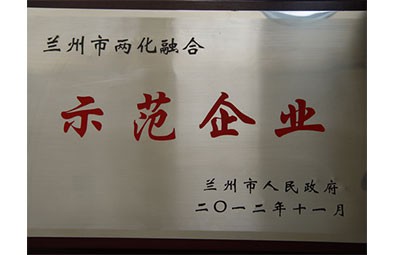 兰州市两化融合
示范企业
兰州市人民政府
二〇一二年十一月